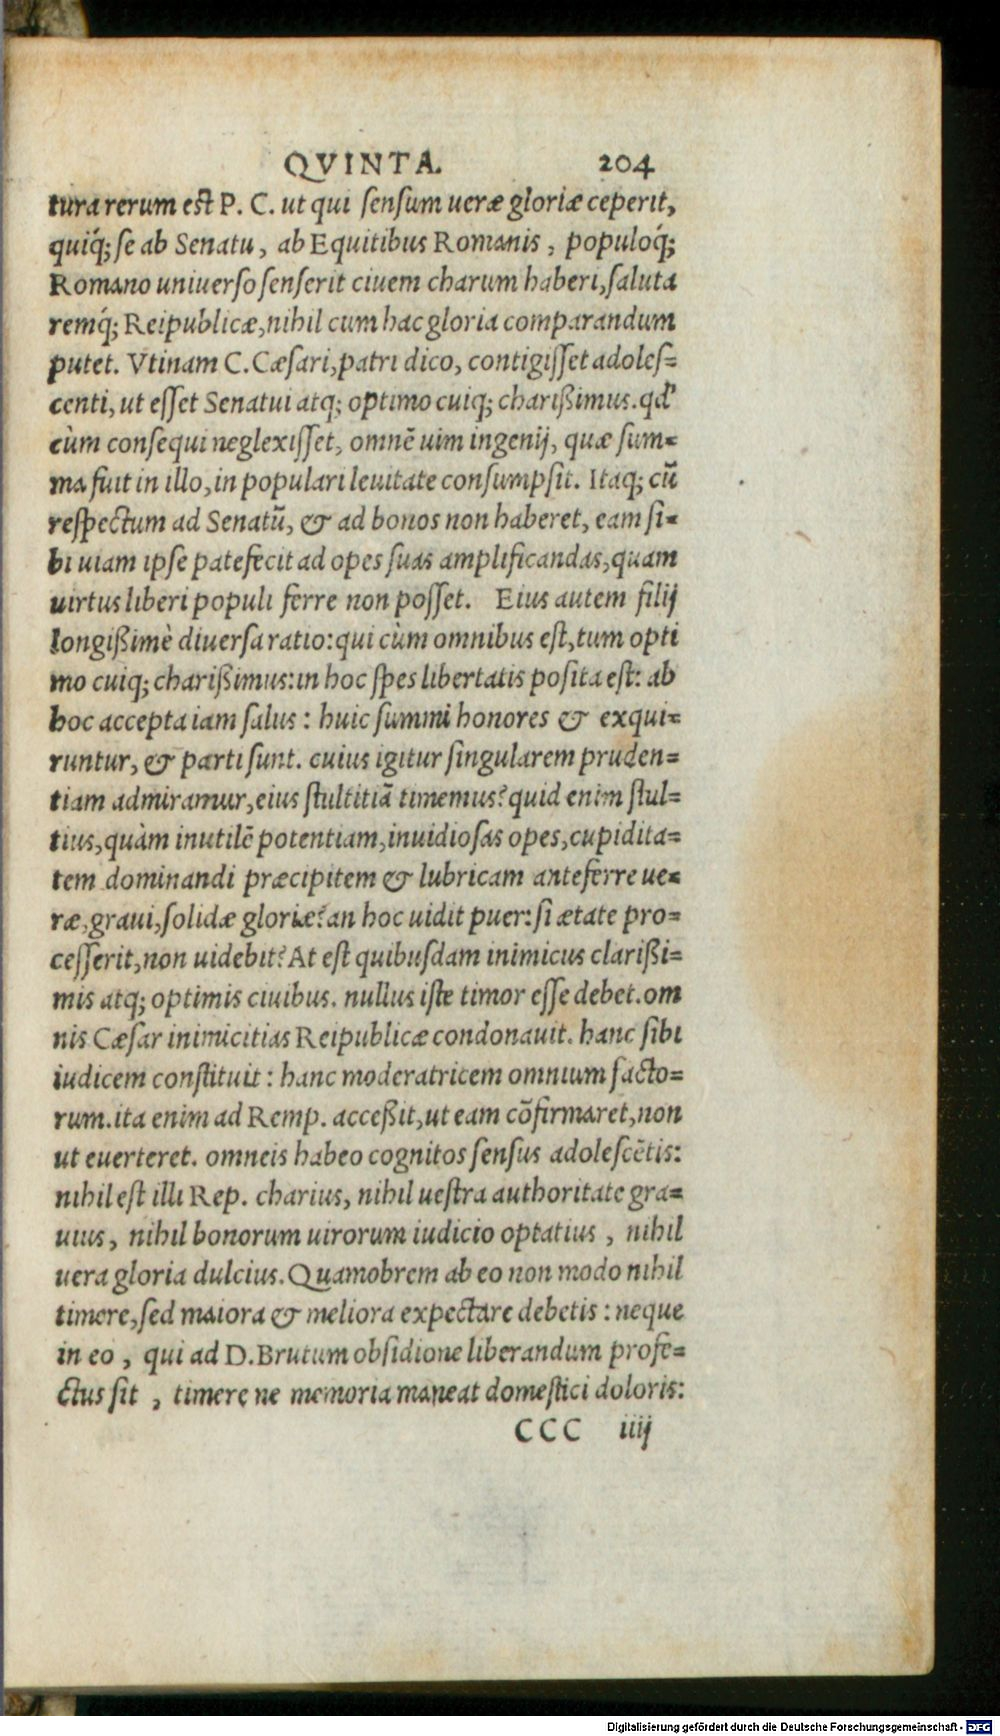 QVINTA. 204
tura rerum est P. C. ut qui sensum ueræ gloriæ ceperit,
quiq́; se ab Senatu, ab Equitibus Romanis, populoq́;
Romano uniuerso senserit ciuem charum haberi, saluta
remq́; Reipublicæ, nihil cum hac gloria comparandum
putet. Vtinam C. Cæsari, patri dico, contigisset adoles=
centi, ut esset Senatui atq; optimo cuiq; charißimus. qđ
cùm consequi neglexisset, omnē uim ingenij, quæ sum=
ma fuit in illo, in populari leuitate consumpsit. Itaq; cū
respectum ad Senatū, & ad bonos non haberet, eam si=
bi uiam ipse patefecit ad opes suas amplificandas, quam
uirtus liberi populi ferre non posset. Eius autem filij
longißimè diuersa ratio: qui cùm omnibus est, tum opti
mo cuiq; charißimus: in hoc spes libertatis posita est: ab
hoc accepta iam salus: huic summi honores & exqui=
runtur, & parti sunt. cuius igitur singularem pruden=
tiam admiramur, eius stultitiā timemus? quid enim stul=
tius, quàm inutilē potentiam, inuidiosas opes, cupidita=
tem dominandi præcipitem & lubricam anteferre ue=
ræ, graui, solidæ gloriæ? an hoc uidit puer: si ætate pro=
cesserit, non uidebit? At est quibusdam inimicus clarißi=
mis atq; optimis ciuibus. nullus iste timor esse debet. om
nis Cæsar inimicitias Reipublicæ condonauit. hanc sibi
iudicem constituit: hanc moderatricem omnium facto=
rum. ita enim ad Remp. acceßit, ut eam cōfirmaret, non
ut euerteret. omneis habeo cognitos sensus adolescētis:
nihil est illi Rep. charius, nihil uestra authoritate gra=
uius, nihil bonorum uirorum iudicio optatius, nihil
uera gloria dulcius. Quamobrem ab eo non modo nihil
timere, sed maiora & meliora expectare debetis: neque
in eo, qui ad D. Brutum obsidione liberandum profe=
ctus sit, timere ne memoria maneat domestici doloris:
CCC iiij
Digitalisierung gefördert durch die Deutsche Forschungsgemeinschaft - DFG